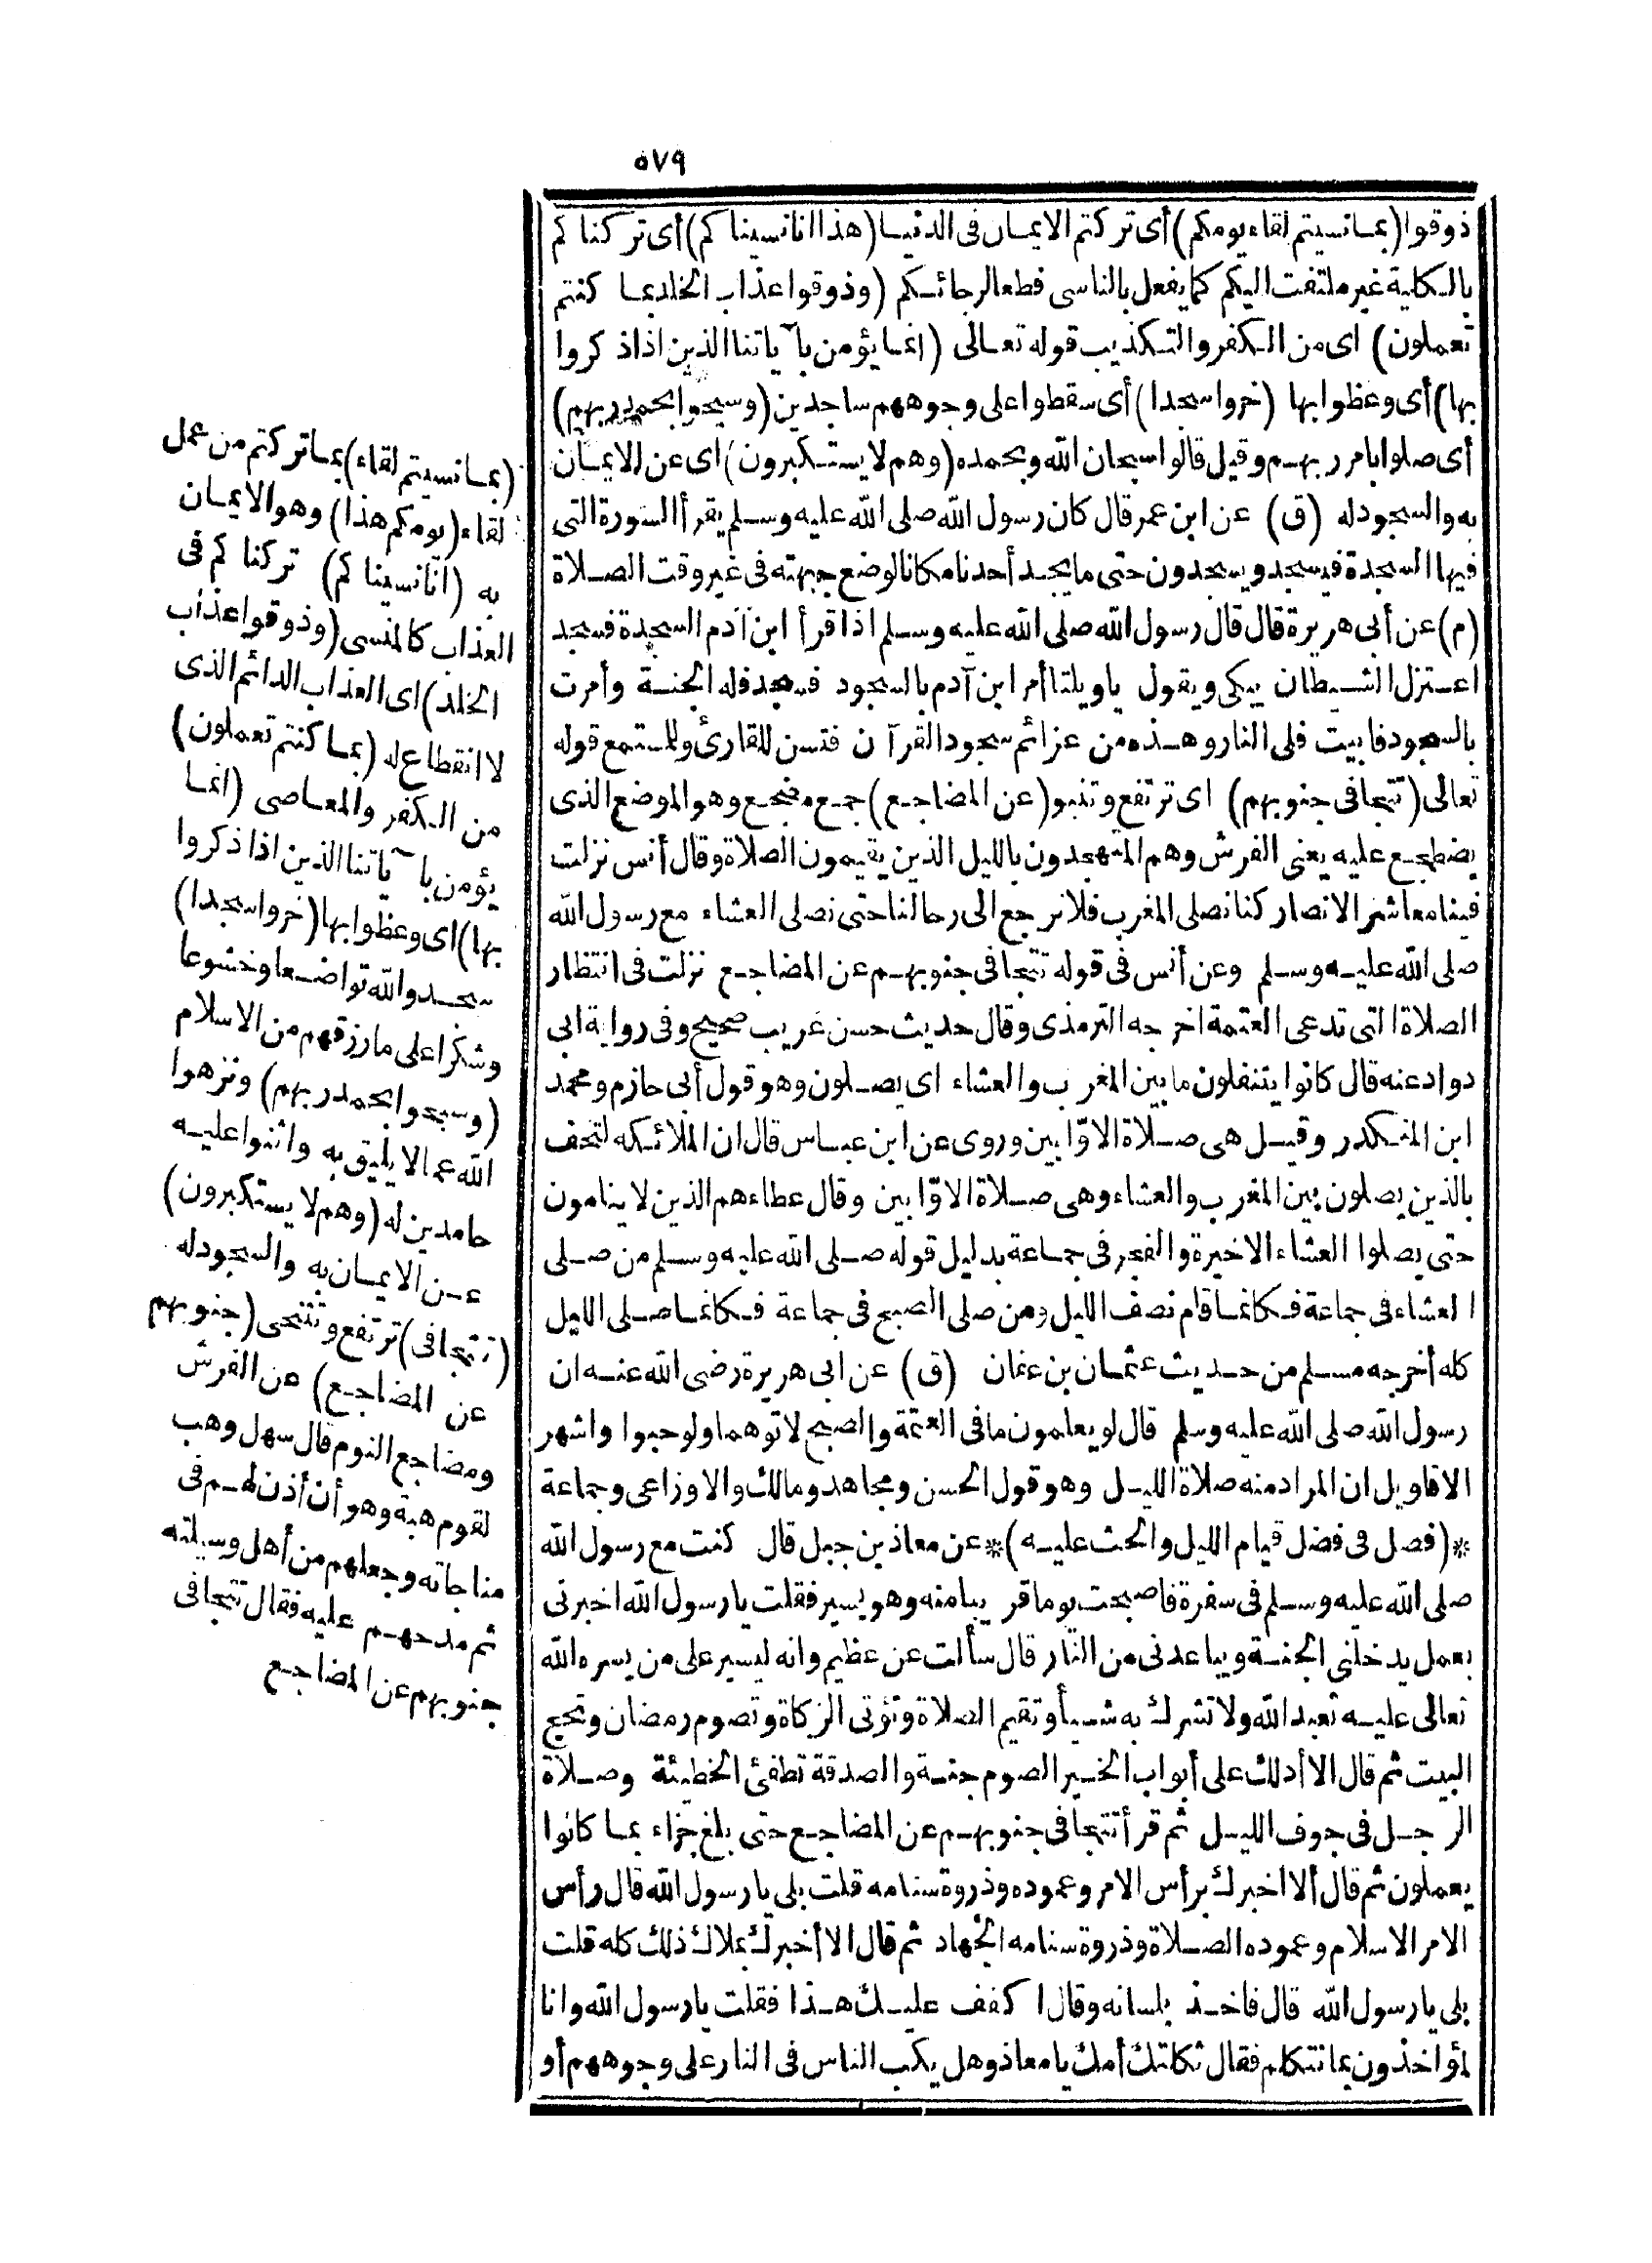 ٥٧٩
ذوقوا (بما نسيتم لقاء يومكم) أى تركتم الايمان فى الدنيا (هذا انا نسيناكم) أى تركناكم
بالكلية غير ملتفت اليكم كما يفعل بالناسى قطعا لرجائكم (وذوقوا عذاب الخلد بما كنتم
تعملون) اى من الكفر والتكذيب قوله تعالى (انما يؤمن بآياتنا الذين اذا ذكروا
بها) أى وعظوا بها (خروا سجدا) أى سقطوا على وجوههم ساجدين (وسبحوا بحمد ربهم)
أى صلوا بامر ربهم وقيل قالوا سبحان الله وبحمده (وهم لا يستكبرون) اى عن الايمان
به والسجود له (ق) عن ابن عمر قال كان رسول الله صلى الله عليه وسلم يقرأ السورة التى
فيها السجدة فيسجد ويسجدون حتى ما يجد أحدنا مكانا لوضع جبهته فى غير وقت الصلاة
(م) عن أبى هريرة قال قال رسول الله صلى الله عليه وسلم اذا قرأ ابن آدم السجدة فسجد
اعتزل الشيطان يبكى ويقول ياويلتا أمر ابن آدم بالسجود فسجد فله الجنة وأمرت
بالسجود فابيت فلى النار وهذه من عزائم سجود القرآن فتسن للقارئ وللمستمع قوله
تعالى (تتجافى جنوبهم) اى ترتفع وتنبو (عن المضاجع) جمع مضجع وهو الموضع الذى
يضطجع عليه يعنى الفرش وهم المتهجدون بالليل الذين يقيمون الصلاة وقال أنس نزلت
فينا معاشر الانصار كنا نصلى المغرب فلا نرجع الى رحالنا حتى نصلى العشاء مع رسول الله
صلى الله عليه وسلم وعن أنس فى قوله تتجافى جنوبهم عن المضاجع نزلت فى انتظار
الصلاة التى تدعى العتمة اخرجه الترمذى وقال حديث حسن غريب صحيح وفى رواية ابى
دواد عنه قال كانوا يتنفلون ما بين المغرب والعشاء اى يصلون وهو قول أبى حازم ومحمد
ابن المنكدر وقيل هى صلاة الاوّابين وروى عن ابن عباس قال ان الملائكه لتحف
بالذين يصلون بين المغرب والعشاء وهى صلاة الاوّابين وقال عطاء هم الذين لا ينامون
حتى يصلوا العشاء الاخيرة والفجر فى جماعة بدليل قوله صلى الله عليه وسلم من صلى
العشاء فى جماعة فكانما قام نصف الليل ومن صلى الصبح فى جماعة فكانما صلى الليل
كله أخرجه مسلم من حديث عثمان بن عفان (ق) عن ابى هريرة رضى الله عنه ان
رسول الله صلى الله عليه وسلم قال لو يعلمون ما فى العتمة والصبح لاتوهما ولو حبوا واشهر
الاقاويل ان المراد منه صلاة الليل وهو قول الحسن ومجاهد ومالك والاوزاعى وجماعة
*(فصل فى فضل قيام الليل والحث عليه)* عن معاذ بن جبل قال كنت مع رسول الله
صلى الله عليه وسلم فى سفرة فاصبحت يوما قريبا منه وهو يسير فقلت يارسول الله اخبرنى
بعمل يدخلنى الجنة ويباعدنى من النار قال سألت عن عظيم وانه ليسير على من يسره الله
تعالى عليه تعبد الله ولا تشرك به شيأ وتقيم الصلاة وتؤتى الزكاة وتصوم رمضان وتحج
البيت ثم قال الا أدلك على أبواب الخير الصوم جنة والصدقة تطفئ الخطيئة وصلاة
الرجل فى جوف الليل ثم قرأ تتجافى جنوبهم عن المضاجع حتى بلغ جزاء بما كانوا
يعملون ثم قال ألا اخبرك برأس الامر وعموده وذروة سنامه قلت بلى يارسول الله قال رأس
الامر الاسلام وعموده الصلاة وذروة سنامه الجهاد ثم قال الا أخبرك بملاك ذلك كله قلت
بلى يارسول الله قال فاخذ بلسانه وقال اكفف عليك هذا فقلت يارسول الله وانا
لمؤاخذون بما نتكلم فقال ثكلتك أمك يامعاذ وهل يكب الناس فى النار على وجوههم أو
(بما نسيتم لقاء) بما تركتم من عمل
لقاء (يومكم هذا) وهو الايمان
به (انا نسيناكم) تركناكم فى
العذاب كالمنسى (وذوقوا عذاب
الخلد) اى العذاب الدائم الذى
لا انقطاع له (بما كنتم تعملون)
من الكفر والمعاصى (انما
يؤمن بآياتنا الذين اذا ذكروا
بها) اى وعظوا بها (خروا سجدا)
سجدوا لله تواضعا وخشوعا
وشكرا على ما رزقهم من الاسلام
(وسبحوا بحمد ربهم) ونزهوا
الله عما لا يليق به واثنوا عليه
حامدين له (وهم لا يستكبرون)
عن الايمان به والسجود له
(تتجافى) ترتفع وتتنحى (جنوبهم
عن المضاجع) عن الفرش
ومضاجع النوم قال سهل وهب
لقوم هبة وهو أن أذن لهم فى
مناجاته وجعلهم من أهل وسيلته
ثم مدحهم عليه فقال تتجافى
جنوبهم عن المضاجع